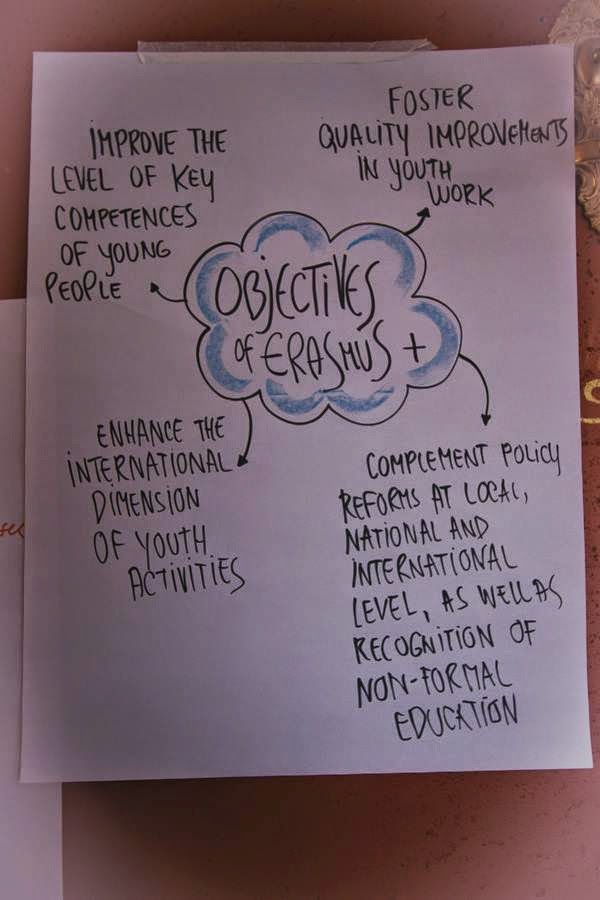 OBJECTIVES
OF ERASMUS +
IMPROVE THE
LEVEL OF KEY
COMPETENCES
OF YOUNG
PEOPLE
FOSTER
QUALITY IMPROVEMENTS
IN YOUTH
WORK
ENHANCE THE
INTERNATIONAL
DIMENSION
OF YOUTH
ACTIVITIES
COMPLEMENT POLICY
REFORMS AT LOCAL,
NATIONAL AND
INTERNATIONAL
LEVEL, AS WELL AS
RECOGNITION OF
NON-FORMAL
EDUCATION